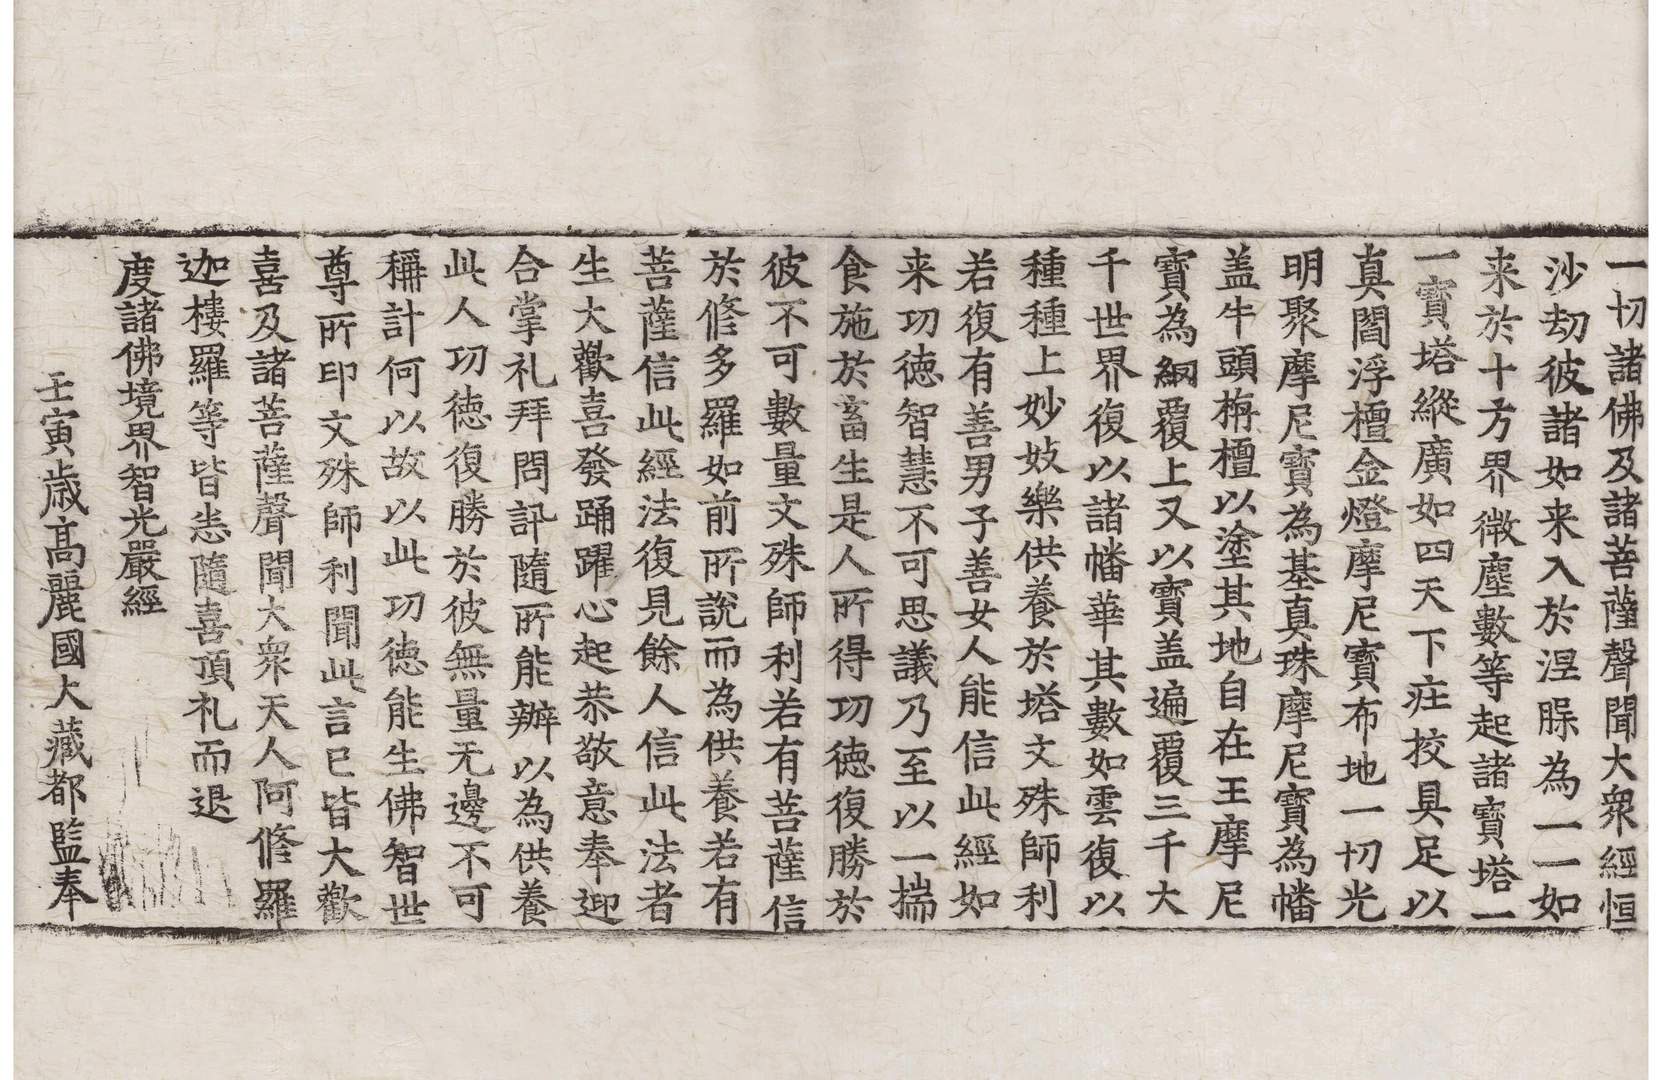 一切諸佛及諸菩薩聲聞大衆經恒
沙劫彼諸如来入於涅脲為一一如
来於十方界微塵數等起諸寶塔一
一寶塔縱廣如四天下庄挍具足以
真閻浮檀金燈摩尼寶布地一切光
明聚摩尼寶為基真珠摩尼寶為幡
盖牛頭栴檀以塗其地自在王摩尼
寶為網覆上又以寶盖遍覆三千大
千世界復以諸幡華其數如雲復以
種種上妙妓樂供養於塔文殊師利
若復有善男子善女人能信此經如
来功德智慧不可思議乃至以一揣
食施於畜生是人所得功德復勝於
彼不可數量文殊師利若有菩薩信
於修多羅如前所說而為供養若有
菩薩信此經法復見餘人信此法者
生大歡喜發踊躍心起恭敬意奉迎
合掌礼拜問訊隨所能辦以為供養
此人功德復勝於彼無量无邊不可
稱計何以故以此功德能生佛智世
尊所印文殊師利聞此言已皆大歡
喜及諸菩薩聲聞大衆天人阿修羅
迦樓羅等皆悉隨喜頂礼而退
度諸佛境界智光嚴經
壬寅歳高麗國大藏都監奉